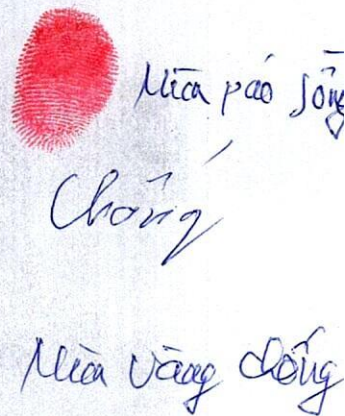 Mùa páo Sống
Chống
Mùa Vàng Chống